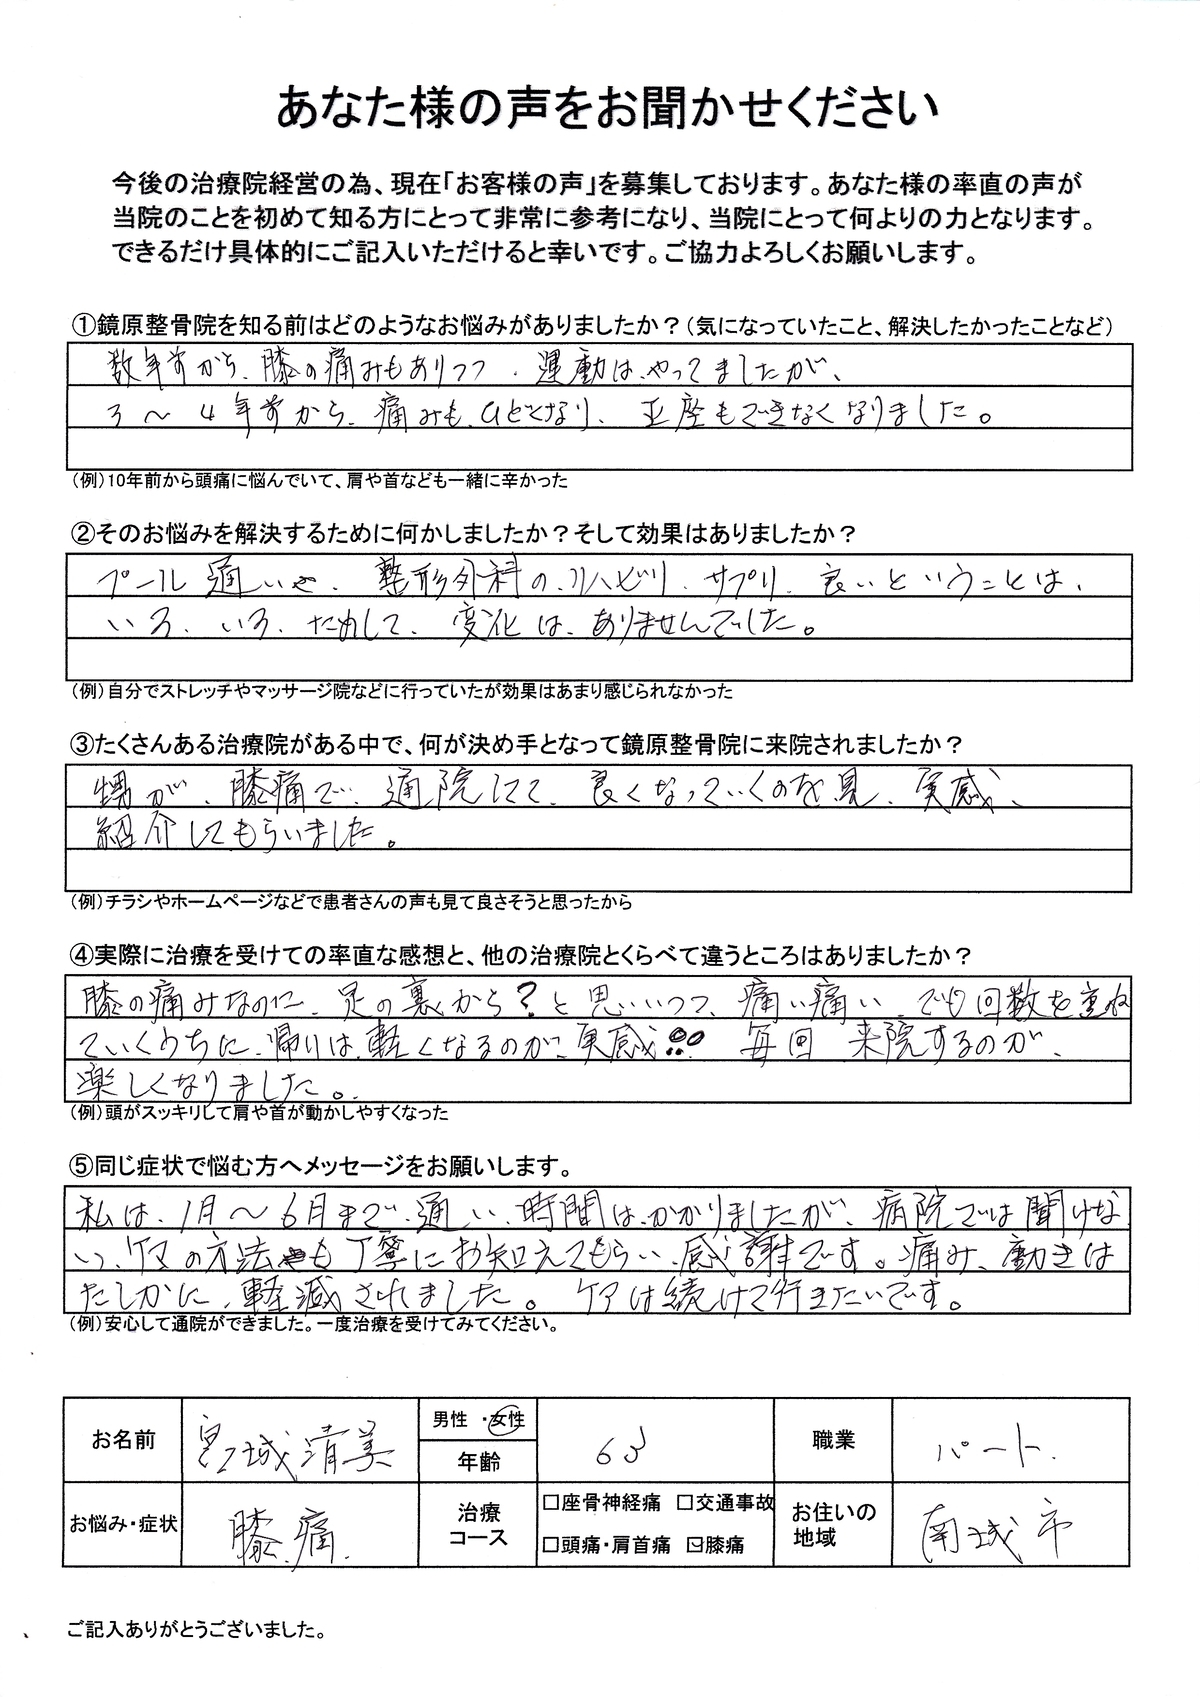 あなた様の声をお聞かせください
今後の治療院経営の為、現在「お客様の声」を募集しております。あなた様の率直の声が
当院のことを初めて知る方にとって非常に参考になり、当院にとって何よりの力となります。
できるだけ具体的にご記入いただけると幸いです。ご協力よろしくお願いします。
①鏡原整骨院を知る前はどのようなお悩みがありましたか?(気になっていたこと、解決したかったことなど)
数年前から、膝の痛みもありつつ、運動は、やってましたが、
3〜4年前から、痛みも、ひどくなり、正座もできなくなりました。
(例)10年前から頭痛に悩んでいて、肩や首なども一緒に辛かった
②そのお悩みを解決するために何かしましたか?そして効果はありましたか?
プール通いや、整形外科の、リハビリ、サプリ、良いということは、
いろ、いろ、ためして、変化は、ありませんでした。
(例)自分でストレッチやマッサージ院などに行っていたが効果はあまり感じられなかった
③たくさんある治療院がある中で、何が決め手となって鏡原整骨院に来院されましたか?
甥が、膝痛で、通院にて、良くなっていくのを見、実感、
紹介してもらいました。
(例)チラシやホームページなどで患者さんの声も見て良さそうと思ったから
④実際に治療を受けての率直な感想と、他の治療院とくらべて違うところはありましたか?
膝の痛みなのに、足の裏から?と思いつつ、痛い痛い、でも回数を重ね
ていくうちに、帰りは、軽くなるのが、実感!!! 毎回 来院するのが、
楽しくなりました。
(例)頭がスッキリして肩や首が動かしやすくなった
⑤同じ症状で悩む方へメッセージをお願いします。
私は、1月〜6月まで、通い、時間は、かかりましたが、病院では聞けな
い、ケアの方法も丁寧にお知えてもらい、感謝です。痛み、動きは
たしかに、軽減されました。ケアは続けて行きたいです。
(例)安心して通院ができました。一度治療を受けてみてください。
お名前 宮城清美 男性・女性 年齢 63 職業 パート.
お悩み・症状 膝痛. 治療コース □座骨神経痛 □交通事故 □頭痛・肩首痛 ☑膝痛 お住いの地域 南城市
ご記入ありがとうございました。